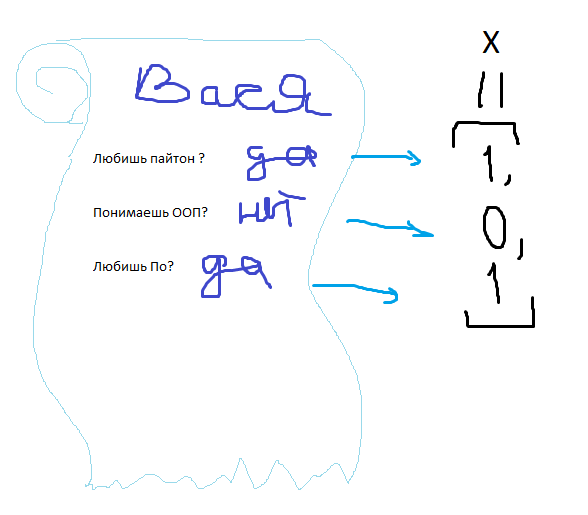 X
Вася
||
Любишь пайтон ? да 1,
Понимаешь ООП? нит 0,
Любишь По? да 1